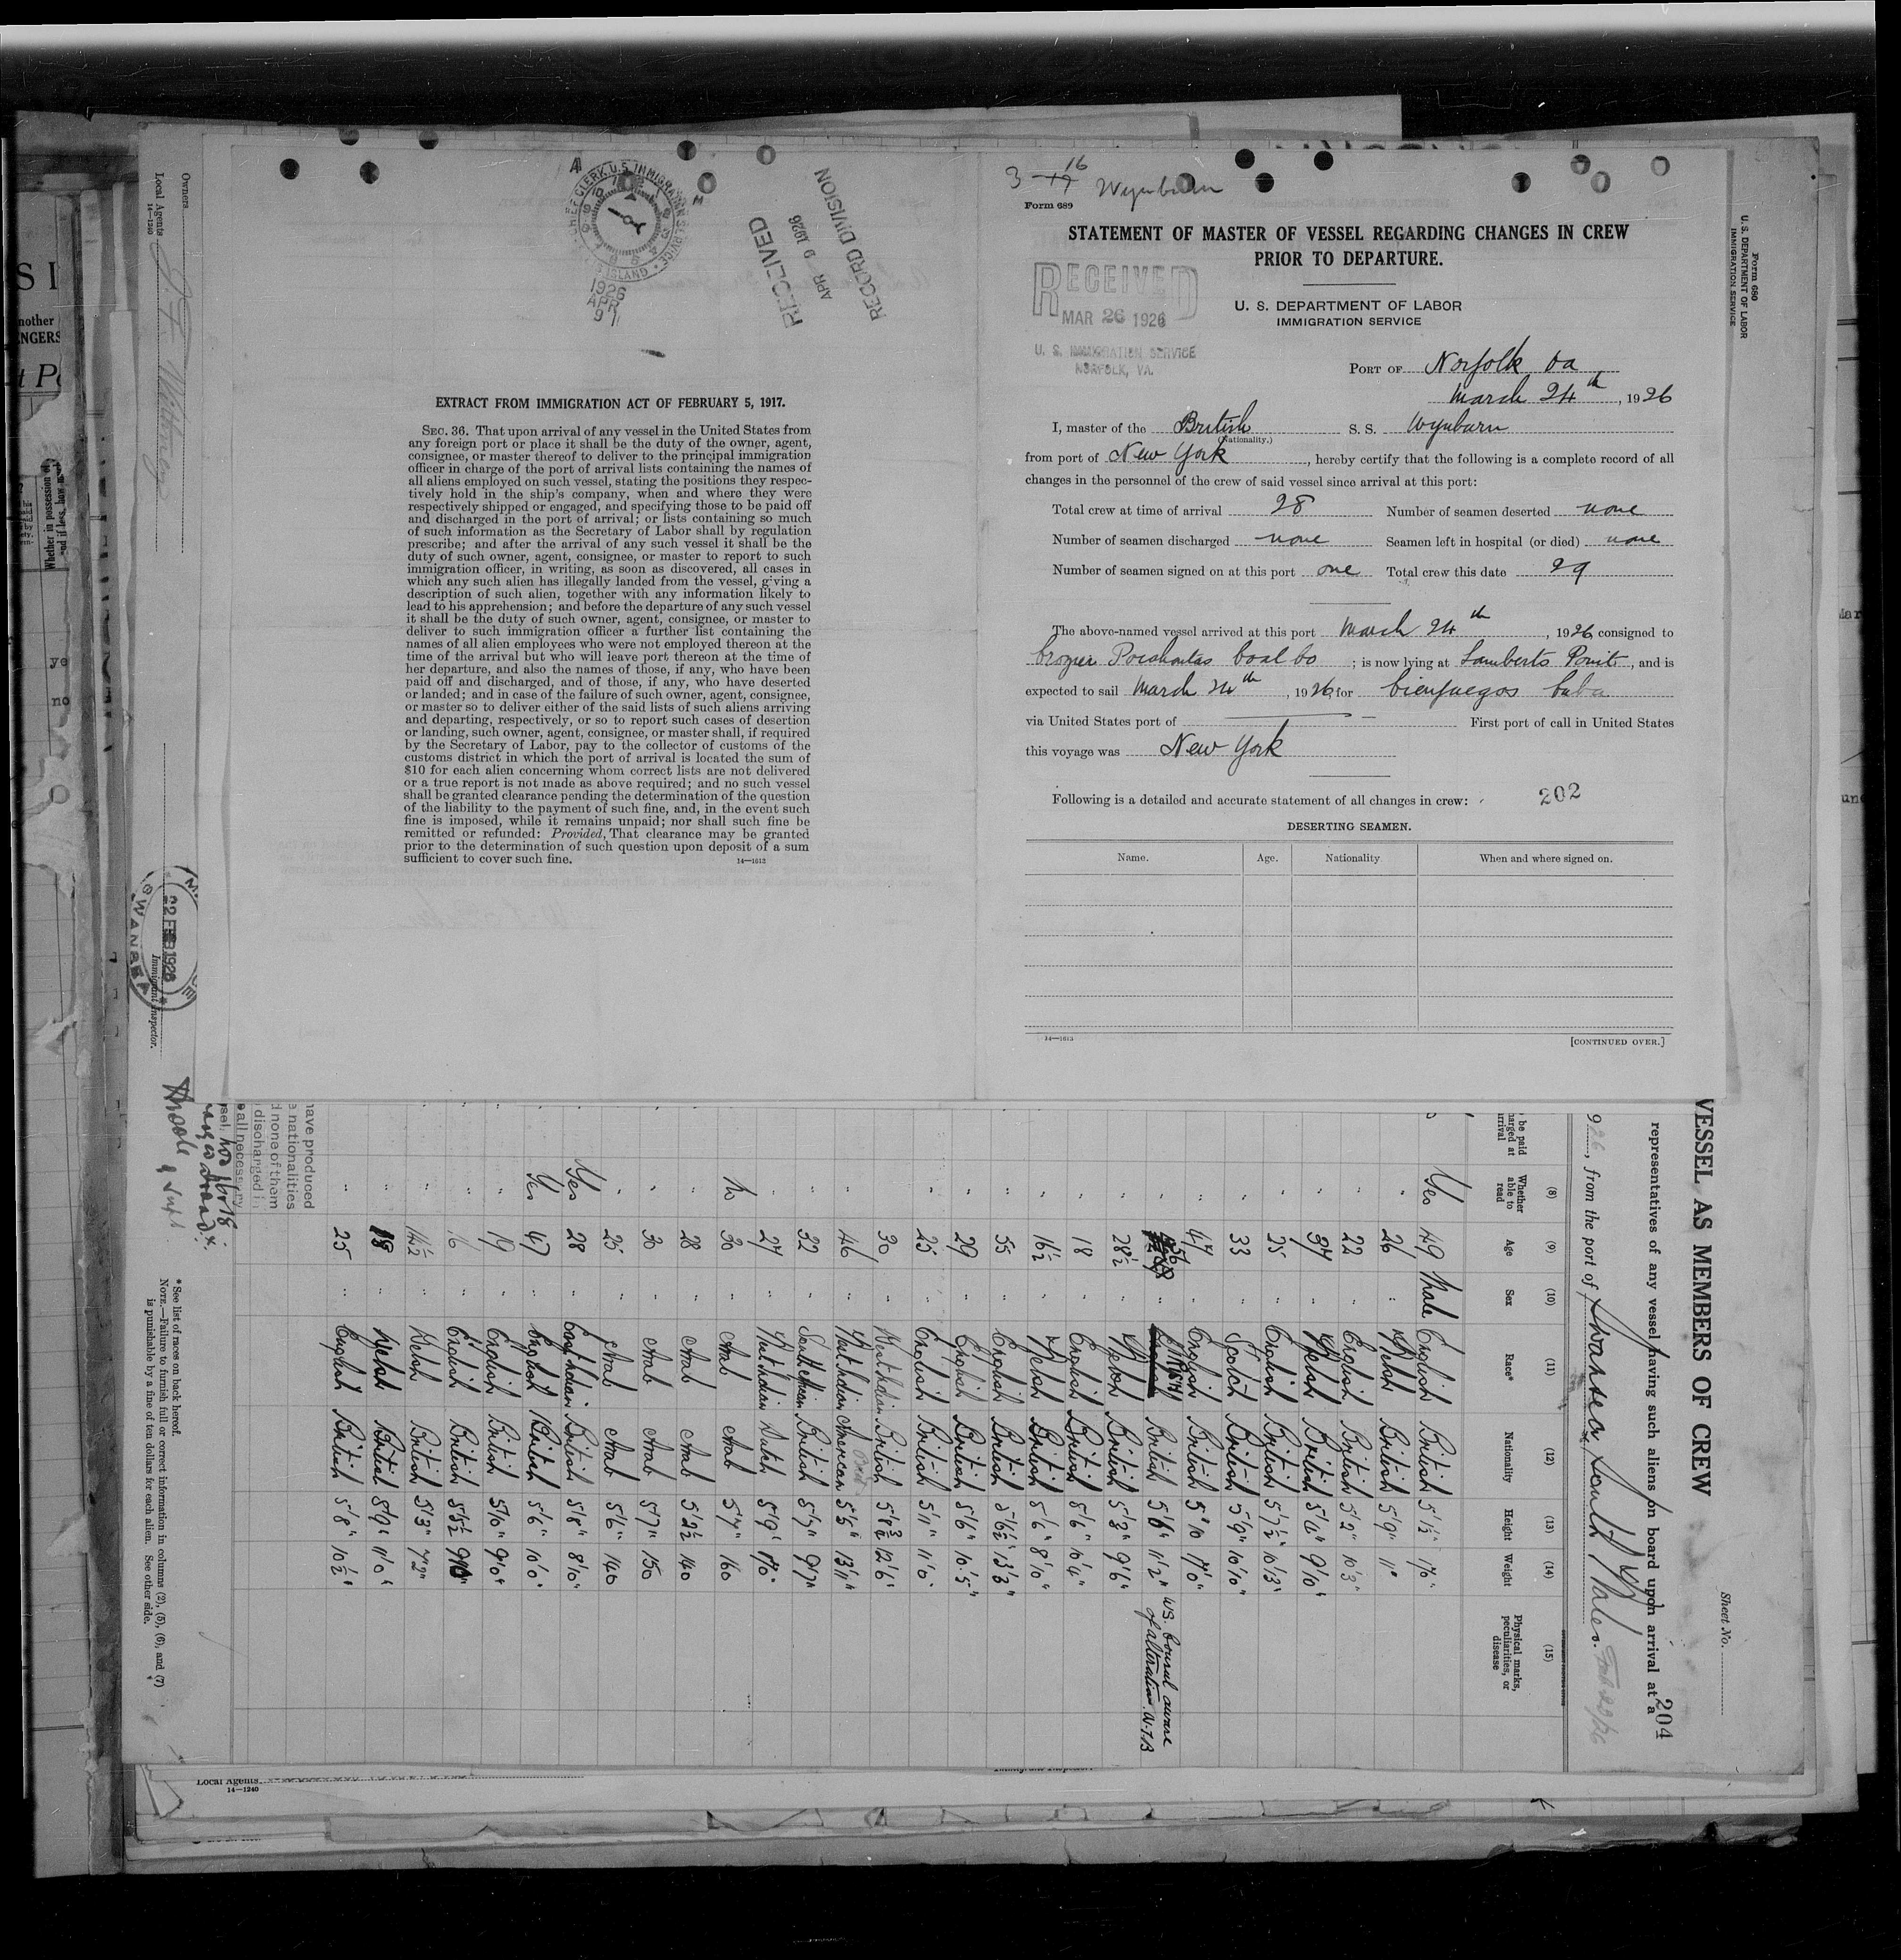 3 17 16 Wynburn
Form 689
STATEMENT OF MASTER OF VESSEL REGARDING CHANGES IN CREW
PRIOR TO DEPARTURE.
U. S. DEPARTMENT OF LABOR
IMMIGRATION SERVICE
RECEIVED
MAR 26 1926
U. S. IMMIGRATION SERVICE
NORFOLK, VA.
PORT OF Norfolk Va
March 24th, 1926
I, master of the British S. S. Wynburn
(Nationality.)
from port of New York, hereby certify that the following is a complete record of all
changes in the personnel of the crew of said vessel since arrival at this port:
Total crew at time of arrival 28 Number of seamen deserted none
Number of seamen discharged none Seamen left in hospital (or died) none
Number of seamen signed on at this port one Total crew this date 29
The above-named vessel arrived at this port March 24th, 1926, consigned to
Crozier Pocahontas Coal Co; is now lying at Lamberts Point, and is
expected to sail March 24th, 1926 for Cienfuegos Cuba
via United States port of First port of call in United States
this voyage was New York
Following is a detailed and accurate statement of all changes in crew: 202
DESERTING SEAMEN.
Name. Age. Nationality. When and where signed on.
14—1613 [CONTINUED OVER.]
CHIEF CLERK, U.S. IMMIGRATION SERVICE
ISLAND
1926
APR
9
RECEIVED
APR 9 1926
RECORD DIVISION
EXTRACT FROM IMMIGRATION ACT OF FEBRUARY 5, 1917.
SEC. 36. That upon arrival of any vessel in the United States from
any foreign port or place it shall be the duty of the owner, agent,
consignee, or master thereof to deliver to the principal immigration
officer in charge of the port of arrival lists containing the names of
all aliens employed on such vessel, stating the positions they respec-
tively hold in the ship's company, when and where they were
respectively shipped or engaged, and specifying those to be paid off
and discharged in the port of arrival; or lists containing so much
of such information as the Secretary of Labor shall by regulation
prescribe; and after the arrival of any such vessel it shall be the
duty of such owner, agent, consignee, or master to report to such
immigration officer, in writing, as soon as discovered, all cases in
which any such alien has illegally landed from the vessel, giving a
description of such alien, together with any information likely to
lead to his apprehension; and before the departure of any such vessel
it shall be the duty of such owner, agent, consignee, or master to
deliver to such immigration officer a further list containing the
names of all alien employees who were not employed thereon at the
time of the arrival but who will leave port thereon at the time of
her departure, and also the names of those, if any, who have been
paid off and discharged, and of those, if any, who have deserted
or landed; and in case of the failure of such owner, agent, consignee,
or master so to deliver either of the said lists of such aliens arriving
and departing, respectively, or so to report such cases of desertion
or landing, such owner, agent, consignee, or master shall, if required
by the Secretary of Labor, pay to the collector of customs of the
customs district in which the port of arrival is located the sum of
$10 for each alien concerning whom correct lists are not delivered
or a true report is not made as above required; and no such vessel
shall be granted clearance pending the determination of the question
of the liability to the payment of such fine, and, in the event such
fine is imposed, while it remains unpaid; nor shall such fine be
remitted or refunded: Provided, That clearance may be granted
prior to the determination of such question upon deposit of a sum
sufficient to cover such fine. 14—1613
Form 680
U. S. DEPARTMENT OF LABOR
IMMIGRATION SERVICE
Sheet No.
VESSEL AS MEMBERS OF CREW
204
representatives of any vessel having such aliens on board upon arrival at a
926, from the port of Swansea South Wales. Feb 22/26
(8) (9) (10) (11) (12) (13) (14) (15)
Whether able to read Age Sex Race* Nationality Height Weight Physical marks, peculiarities, or disease
Yes 49 Male English British 5 1½" 176"
" 26 " Welsh British 5'9" 11"
" 22 " English British 5'2" 10'3"
" 37 " Welsh British 5'4" 9'10"
" 25 " English British 5'7½" 10'13"
" 33 " Scotch British 5'9" 10'10"
" 47 " English British 5'10 17'0"
" 56 " British 5'6" 11'2" U.S. Consul aware
of alteration W.T.B
" 28½ " Welsh British 5'3" 9'6"
" 18 " English British 5'6" 10'4"
" 16½ " Welsh British 5'6" 8'10"
" 55 " English British 5'6½" 13'3"
" 29 " English British 5'6" 10.5"
" 25 " English British 5'11" 11'0"
30 " West Indian British 5'8¾ 12'6"
" 46 " West Indian American 5'5" 13'11"
" 32 " South African British 5'7" 9'7"
" 27 " West Indian Dutch 5'9" 170"
No 30 " Arab Arab 5'7" 160
" 28 " Arab Arab 5'2½ 140
" 30 " Arab Arab 5'7" 150
" 25 " Arab Arab 5'6" 140
Yes 28 " East Indian British 5'8" 8'10"
Yes 47 " English British 5'6" 10'0"
" 19 " English British 5'10" 9'0"
" 16 " English British 5'5½
" " Welsh British 5'3" 7'2"
" 18 " Welsh British 5'9" 11'0"
" 25 " English British 5'8" 10½"
have produced
nationalities
none of them
discharged
all necessary
*See list of races on back hereof.
NOTE.—Failure to furnish full or correct information in columns (2), (5), (6), and (7)
is punishable by a fine of ten dollars for each alien. See other side.
Immigrant Inspector.
22 FEB 1926
SWANSEA
Owners
Local Agents
14—1240
Local Agents
14—1240